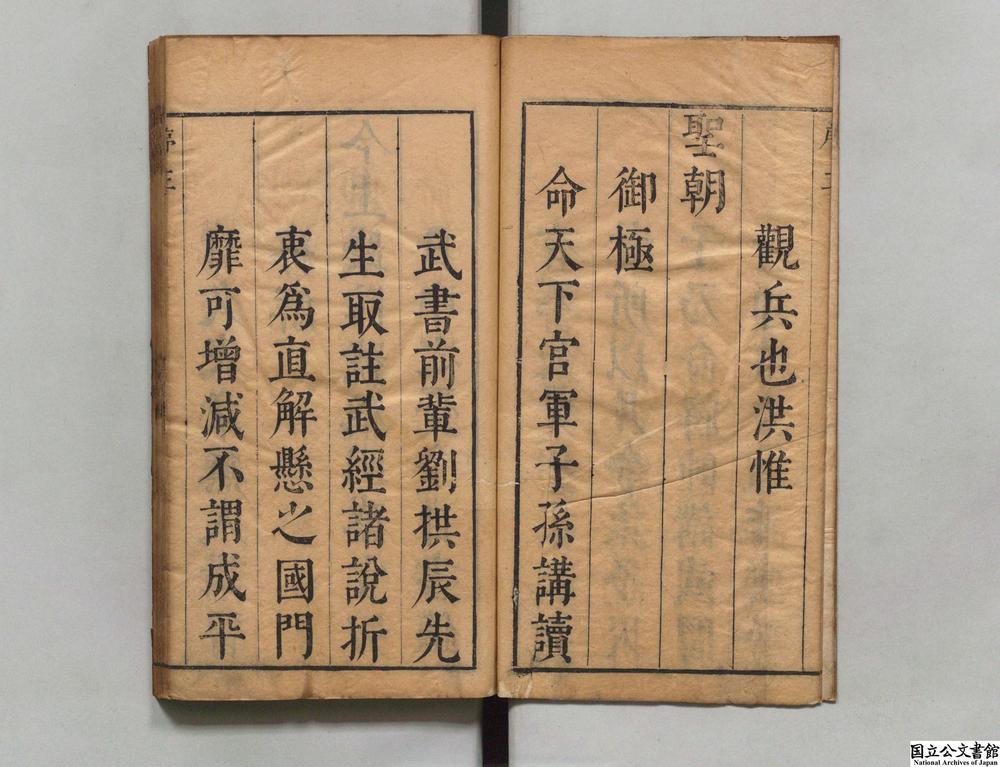 觀兵也洪惟
聖朝
御極
命天下官軍子孫講讀
武書前輩劉拱辰先
生取註武經諸說折
衷為直解懸之國門
靡可增減不謂成平
国立公文書館
National Archives of Japan